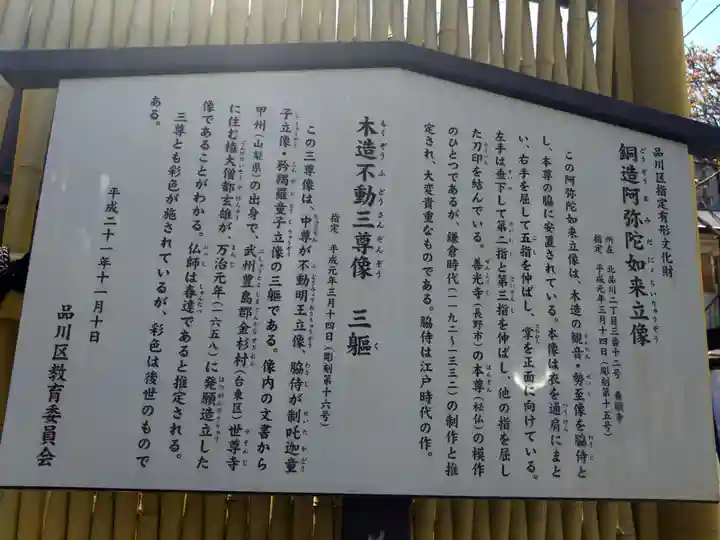 品川区指定有形文化財
銅造阿弥陀如来立像
どうぞうあみだにょらいりゅうぞう
所在 北品川二丁目三番十二号 養願寺
指定 平成元年三月十四日(彫刻第十五号)
この阿弥陀如来立像は、木造の観音・勢至像を脇侍と
し、本尊の脇に安置されている。本像は衣を通肩にまと
い、右手を屈して五指を伸ばし、掌を正面に向けている。
左手は垂下して第二指と第三指を伸ばし、他の指を屈し
た刀印を結んでいる。善光寺(長野市)の本尊(秘仏)の模作
のひとつであるが、鎌倉時代(一一九二~一三三二)の制作と推
定され、大変貴重なものである。脇侍は江戸時代の作。
木造不動三尊像 三軀
もくぞうふどうさんぞんぞう く
指定 平成元年三月十四日(彫刻第十六号)
この三尊像は、中尊が不動明王立像、脇侍が制吒迦童
子立像・矜羯羅童子立像の三軀である。像内の文書から
甲州(山梨県)の出身で、武州豊島郡金杉村(台東区)世尊寺
に住む権大僧都玄雄が、万治元年(一六五八)に発願造立した
像であることがわかる。仏師は春達であると推定される。
三尊とも彩色が施されているが、彩色は後世のもので
ある。
平成二十一年十一月十日
品川区教育委員会